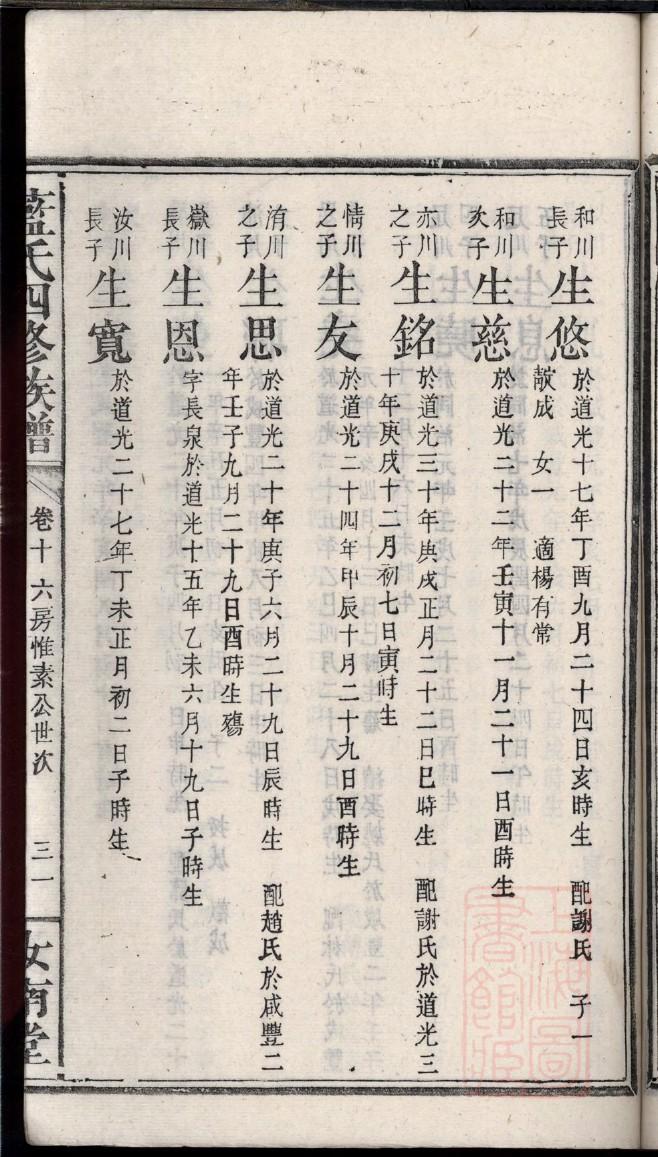 和川長子 生悠 於道光十七年丁酉九月二十四日亥時生 配謝氏 子一
歊成 女一 適楊有常
和川次子 生慈 於道光二十二年壬寅十一月二十一日酉時生
亦川之子 生銘 於道光三十年庚戌正月二十二日巳時生 配謝氏於道光三
十年庚戌十二月初七日寅時生
情川之子 生友 於道光二十四年甲辰十月二十九日酉時生
洧川之子 生思 於道光二十年庚子六月二十九日辰時生 配趙氏於咸豐二
年壬子九月二十九日酉時生殤
嶽川長子 生恩 字長泉於道光十五年乙未六月十九日子時生
汝川長子 生寬 於道光二十七年丁未正月初二日子時生
藍氏四修族譜
卷十 六房惟素公世次
三一
汝南堂
上海圖書館藏